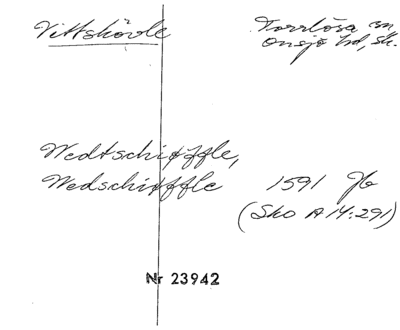 Vittskövle
Torrlösa sn
Onsjö hd, Sk.
Wedtschiøffle,
Wedschiøffle 1591 Jb
(Sko A 14:291)
Nr 23942